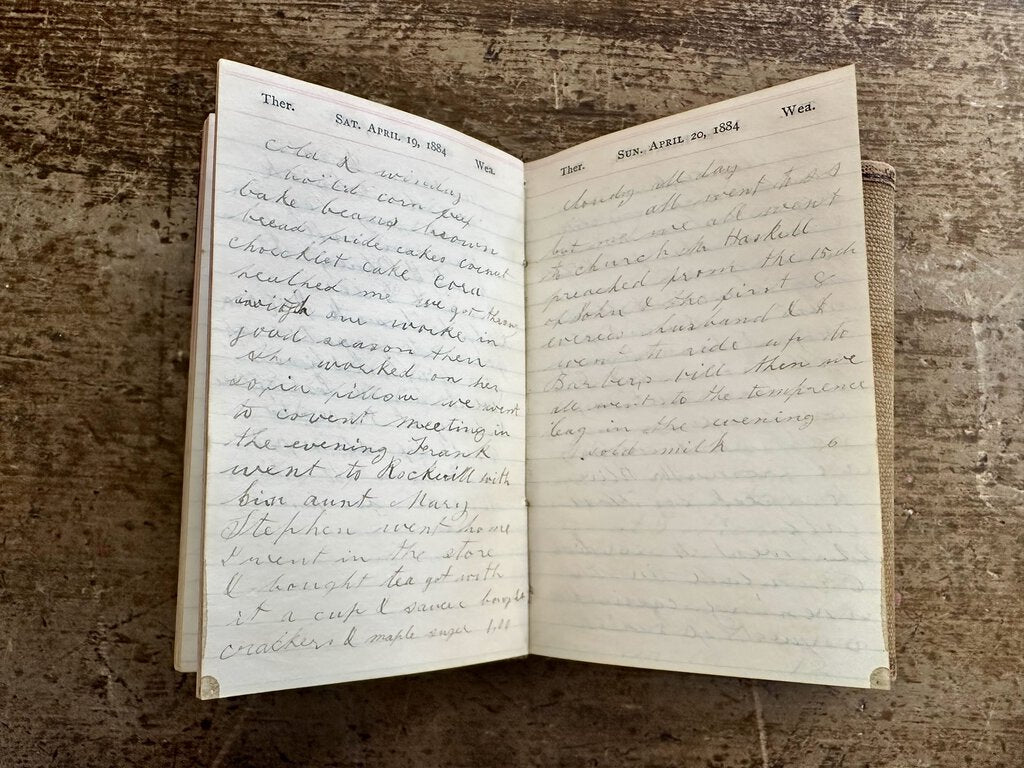 Ther.
SAT. APRIL 19, 1884
Wea.
cold & winday
boild corn bef
bake beans brown
bread fride cakes coconut
chocklet cake Cora
healped me we got throug
with our worke in
good season then
she worked on her
sofia pillow we went
to covent meeting in
the evening Frank
went to Rockvill with
him aunt Mary
Stephen went home
I went in the store
& bought tea got with
it a cup & saucer bought
crackers & maple suger 1,00
Ther.
SUN. APRIL 20, 1884
Wea.
cloudy all day
all went to S S
but me we all went
to church Mr Haskell
preached from the 15 ch
of John & the first &
verces husband & I
went to ride up to
Barbers hill then we
all went to the temprence
leag in the evening
sold milk 6